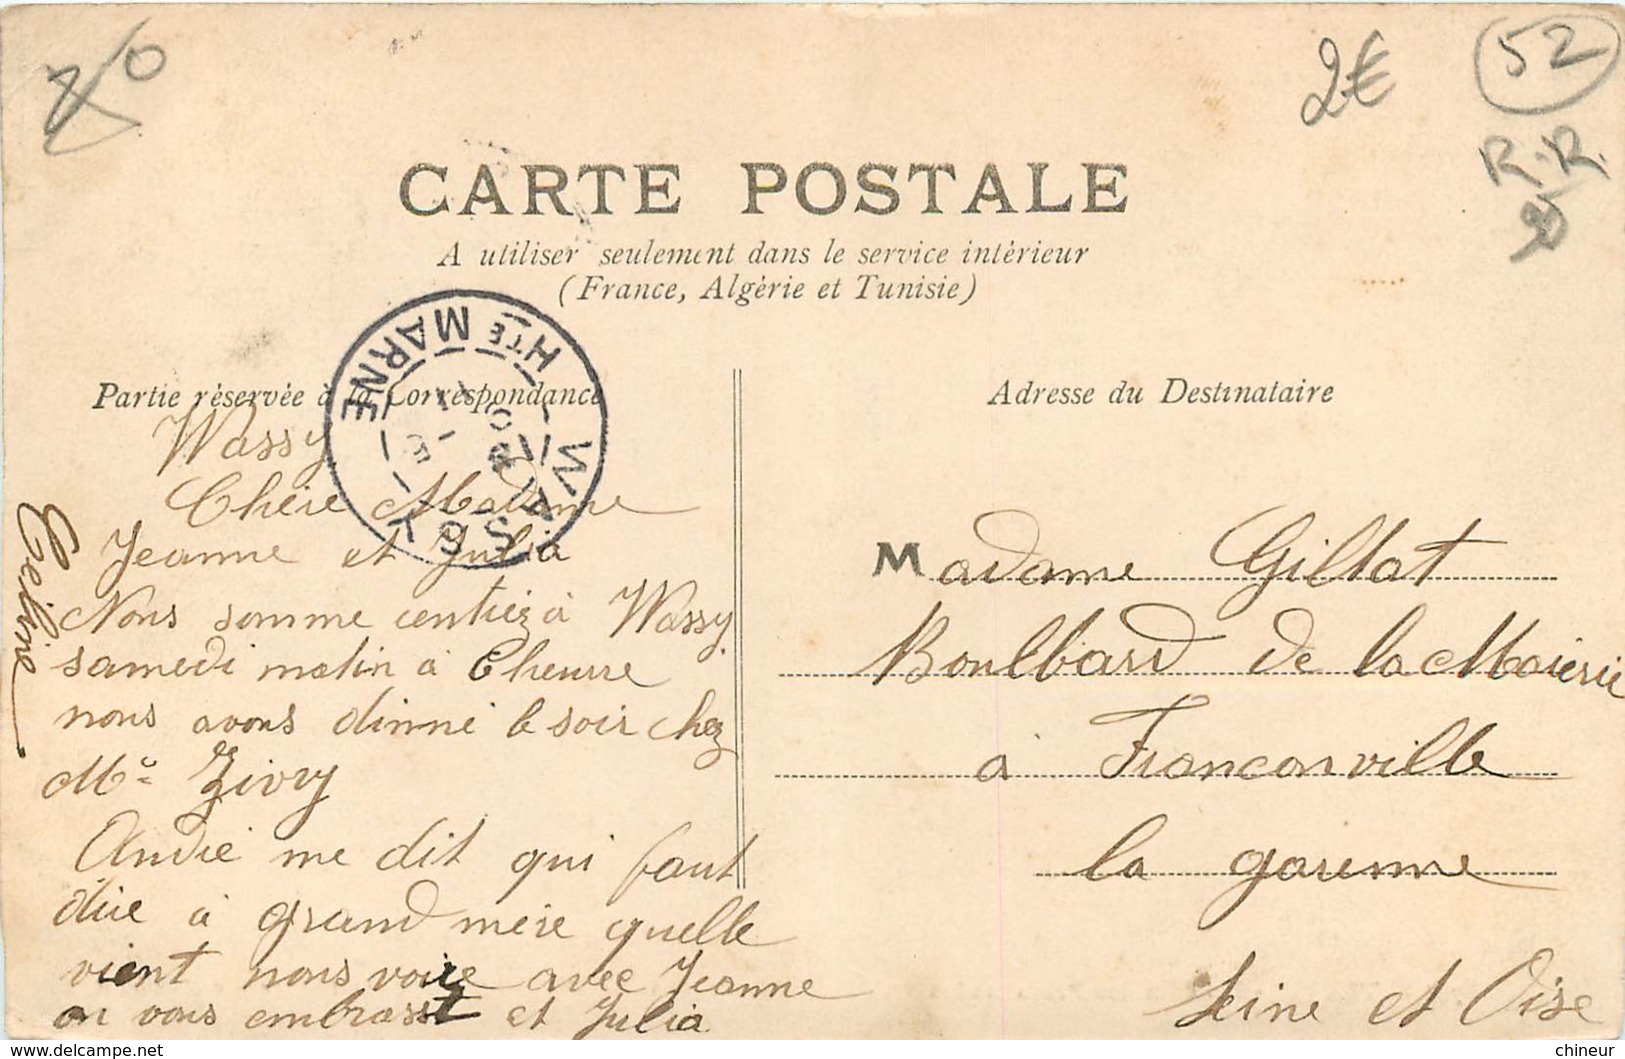 2€
52
R.R.
CARTE POSTALE
A utiliser seulement dans le service intérieur
(France, Algérie et Tunisie)
Partie réservée à la Correspondance
Adresse du Destinataire
WASSY
HTE MARNE
Wassy
Chère Madame
Jeanne et Julia
Nous somme entrez à Wassy
samedi matin à 6 heure
nous avons dinné le soir chez
Me Zivry
André me dit qui faut
dire à grand mère quelle
vient nous voire avec Jeanne
on vous embrasse et Julia
Celine
Madame Giltat
Boulbard de la Mairie
à Franconville
la garenne
Seine et Oise
chineur